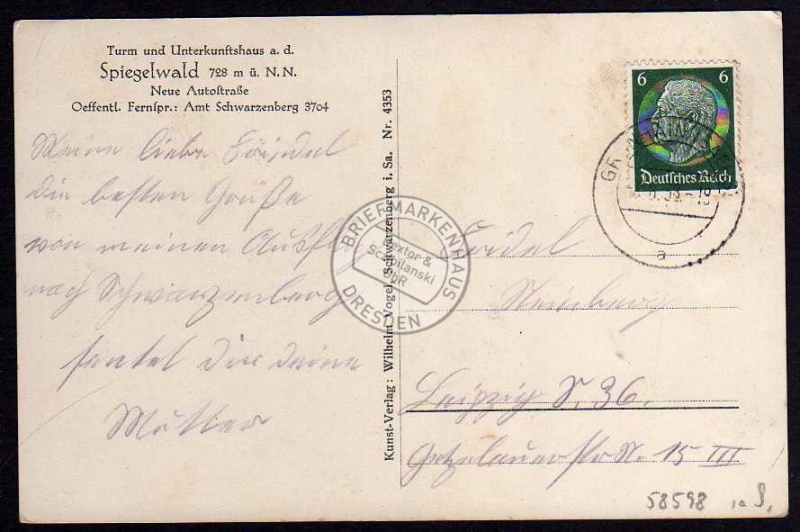 Turm und Unterkunftshaus a. d.
Spiegelwald 728 m ü. N. N.
Neue Autostraße
Oeffentl. Fernspr.: Amt Schwarzenberg 3704
Meine liebe
die besten Grüße
von meinen Ausflug
nach Schwarzenberg
sendet Dir deine
Mutter
Kunst-Verlag: Wilhelm Vogel, Schwarzenberg i. Sa. Nr. 4353
BRIEFMARKENHAUS
Rextor &
Sczpilanski
GbR
DRESDEN
6 6
Deutsches Reich
a
Leipzig S. 36.
str. No. 15 III
58598